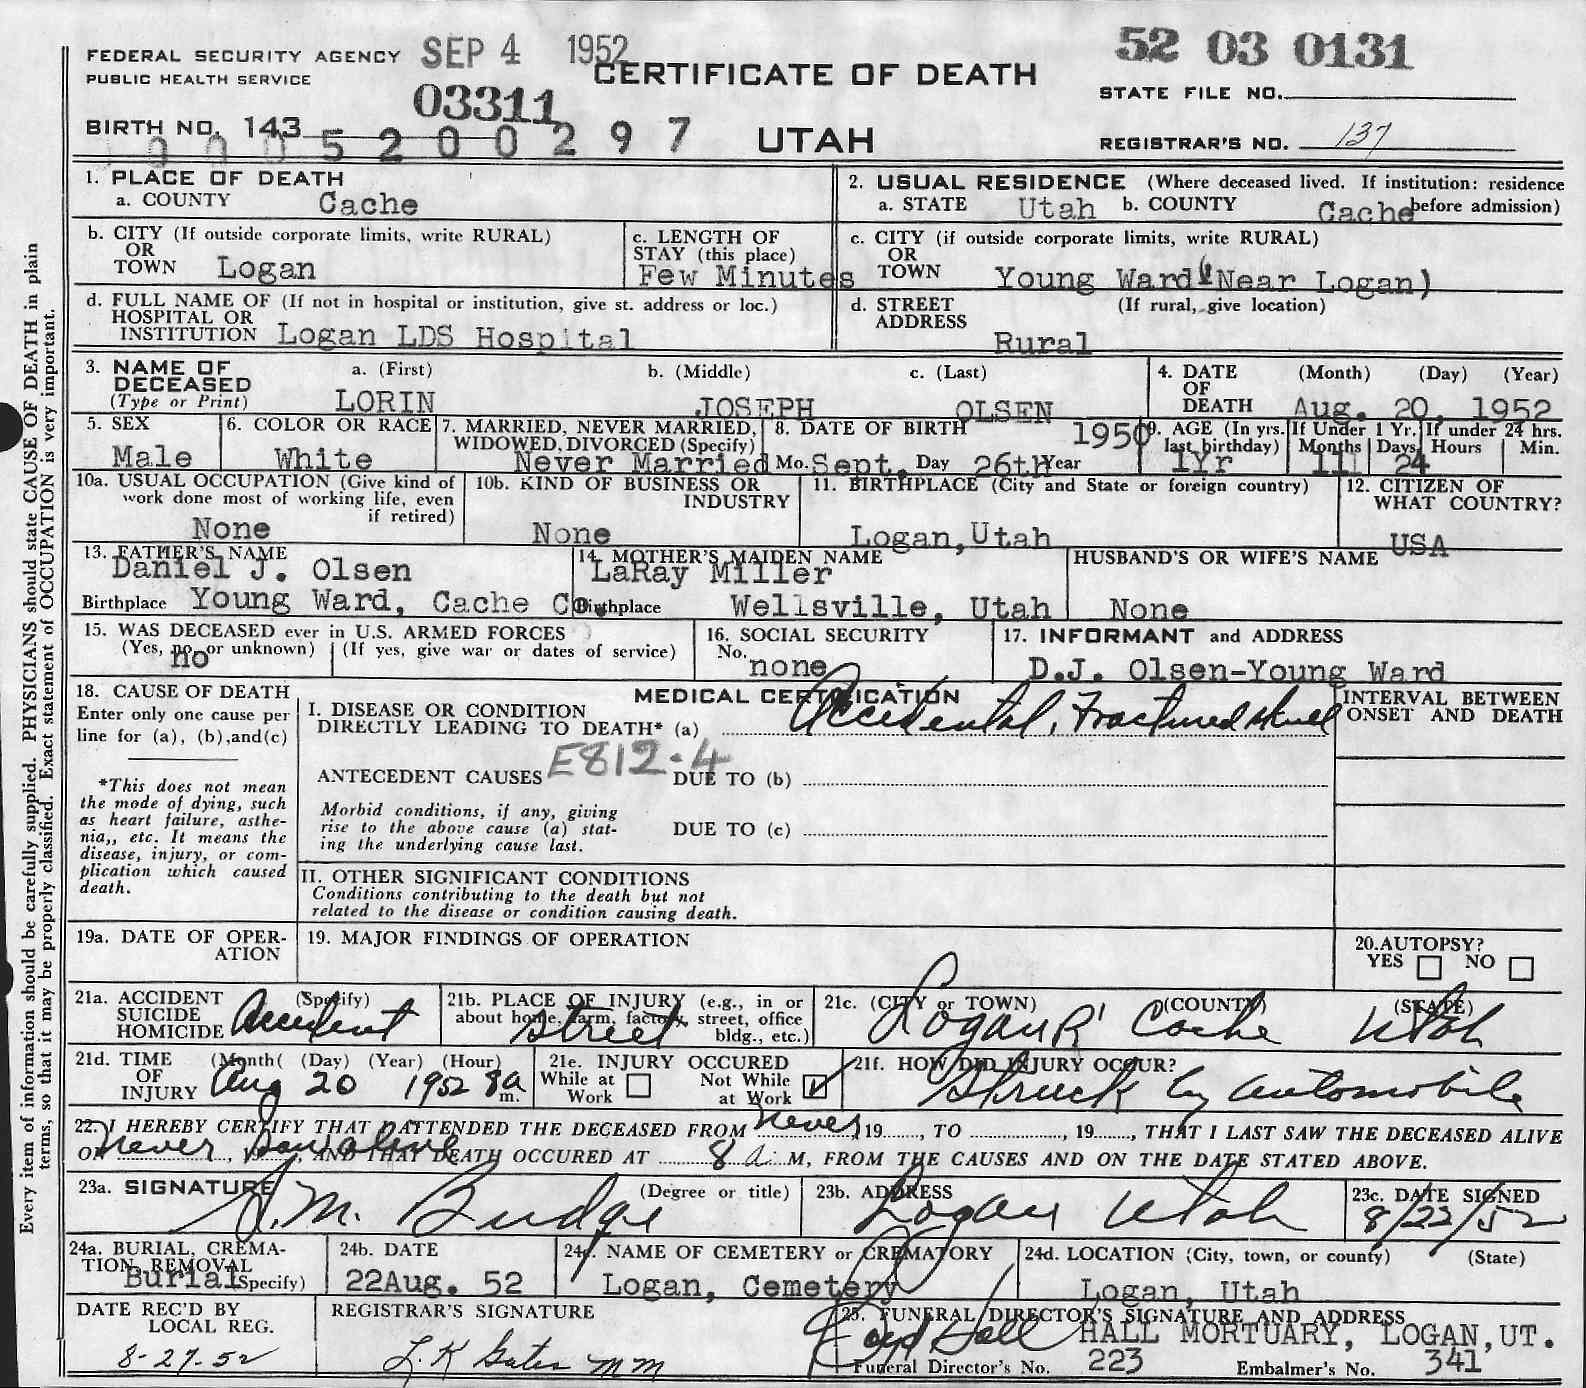 FEDERAL SECURITY AGENCY SEP 4 1952
PUBLIC HEALTH SERVICE
CERTIFICATE OF DEATH
52 03 0131
STATE FILE NO.
03311
BIRTH NO. 143
5200297
UTAH
REGISTRAR'S NO. 137
1. PLACE OF DEATH
a. COUNTY Cache
2. USUAL RESIDENCE (Where deceased lived. If institution: residence before admission)
a. STATE Utah b. COUNTY Cache
b. CITY (If outside corporate limits, write RURAL)
OR
TOWN Logan
c. LENGTH OF
STAY (this place)
Few Minutes
c. CITY (if outside corporate limits, write RURAL)
OR
TOWN Young Ward (Near Logan)
d. FULL NAME OF (If not in hospital or institution, give st. address or loc.)
HOSPITAL OR
INSTITUTION Logan LDS Hospital
d. STREET (If rural, give location)
ADDRESS
Rural
3. NAME OF a. (First) b. (Middle) c. (Last)
DECEASED
(Type or Print) LORIN JOSEPH OLSEN
4. DATE (Month) (Day) (Year)
OF
DEATH Aug. 20, 1952
5. SEX
Male
6. COLOR OR RACE
White
7. MARRIED, NEVER MARRIED,
WIDOWED, DIVORCED (Specify)
Never Married
8. DATE OF BIRTH 1950
Mo. Sept. Day 26th Year
9. AGE (In yrs. last birthday)
1Yr
If Under 1 Yr.
Months 11 Days 24
If under 24 hrs.
Hours Min.
10a. USUAL OCCUPATION (Give kind of
work done most of working life, even
if retired)
None
10b. KIND OF BUSINESS OR
INDUSTRY
None
11. BIRTHPLACE (City and State or foreign country)
Logan,Utah
12. CITIZEN OF
WHAT COUNTRY?
USA
13. FATHER'S NAME
Daniel J. Olsen
Birthplace Young Ward, Cache Co.
14. MOTHER'S MAIDEN NAME
LaRay Miller
Birthplace Wellsville, Utah
HUSBAND'S OR WIFE'S NAME
None
15. WAS DECEASED ever in U.S. ARMED FORCES
(Yes, no, or unknown) (If yes, give war or dates of service)
no
16. SOCIAL SECURITY
No. none
17. INFORMANT and ADDRESS
D.J. Olsen-Young Ward
18. CAUSE OF DEATH
Enter only one cause per
line for (a), (b),and(c)
*This does not mean
the mode of dying, such
as heart failure, asthe-
nia,, etc. It means the
disease, injury, or com-
plication which caused
death.
MEDICAL CERTIFICATION
I. DISEASE OR CONDITION
DIRECTLY LEADING TO DEATH* (a) Accidental, Fractured skull
INTERVAL BETWEEN
ONSET AND DEATH
ANTECEDENT CAUSES E812.4 DUE TO (b)
Morbid conditions, if any, giving
rise to the above cause (a) stat-
ing the underlying cause last.
DUE TO (c)
II. OTHER SIGNIFICANT CONDITIONS
Conditions contributing to the death but not
related to the disease or condition causing death.
19a. DATE OF OPER-
ATION
19. MAJOR FINDINGS OF OPERATION
20.AUTOPSY?
YES NO
21a. ACCIDENT (Specify)
SUICIDE
HOMICIDE Accident
21b. PLACE OF INJURY (e.g., in or
about home, farm, factory, street, office
bldg., etc.)
Street
21c. (CITY or TOWN) (COUNTY) (STATE)
Logan R1 Cache Utah
21d. TIME (Month( (Day) (Year) (Hour)
OF
INJURY Aug 20 1952 8a m.
21e. INJURY OCCURED
While at Work Not While at Work
21f. HOW DID INJURY OCCUR?
Struck by automobile
22. I HEREBY CERTIFY THAT I ATTENDED THE DECEASED FROM never, 19......, TO ............, 19......, THAT I LAST SAW THE DECEASED ALIVE
ON never saw alive, 19...., AND THAT DEATH OCCURED AT 8 a. M, FROM THE CAUSES AND ON THE DATE STATED ABOVE.
23a. SIGNATURE (Degree or title)
Budge
23b. ADDRESS
Logan Utah
23c. DATE SIGNED
8/22/52
24a. BURIAL, CREMA-
TION, REMOVAL
(Specify) Burial
24b. DATE
22Aug. 52
24c. NAME OF CEMETERY or CREMATORY
Logan, Cemetery
24d. LOCATION (City, town, or county) (State)
Logan, Utah
DATE REC'D BY
LOCAL REG.
8-27-52
REGISTRAR'S SIGNATURE
25. FUNERAL DIRECTOR'S SIGNATURE AND ADDRESS
Hall HALL MORTUARY, LOGAN,UT.
Funeral Director's No. 223 Embalmer's No. 341
Every item of information should be carefully supplied. PHYSICIANS should state CAUSE OF DEATH in plain
terms, so that it may be properly classified. Exact statement of OCCUPATION is very important.